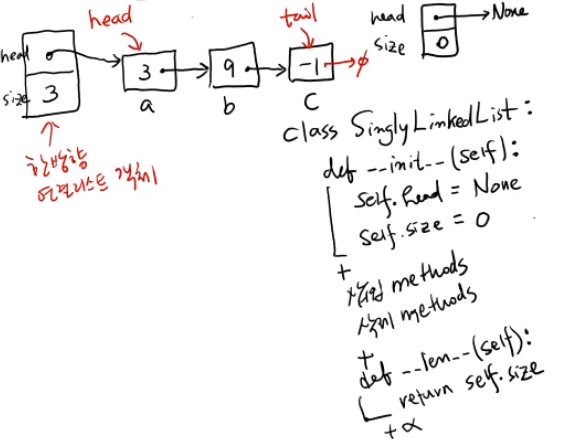 head
tail
head
None
size
0
head
3
9
-1
ϕ
size
3
a
b
c
한방향
연결리스트 객체
class SinglyLinkedList:
def __init__(self):
self.head = None
self.size = 0
+
삽입 methods
삭제 methods
+
def __len__(self):
return self.size
+α